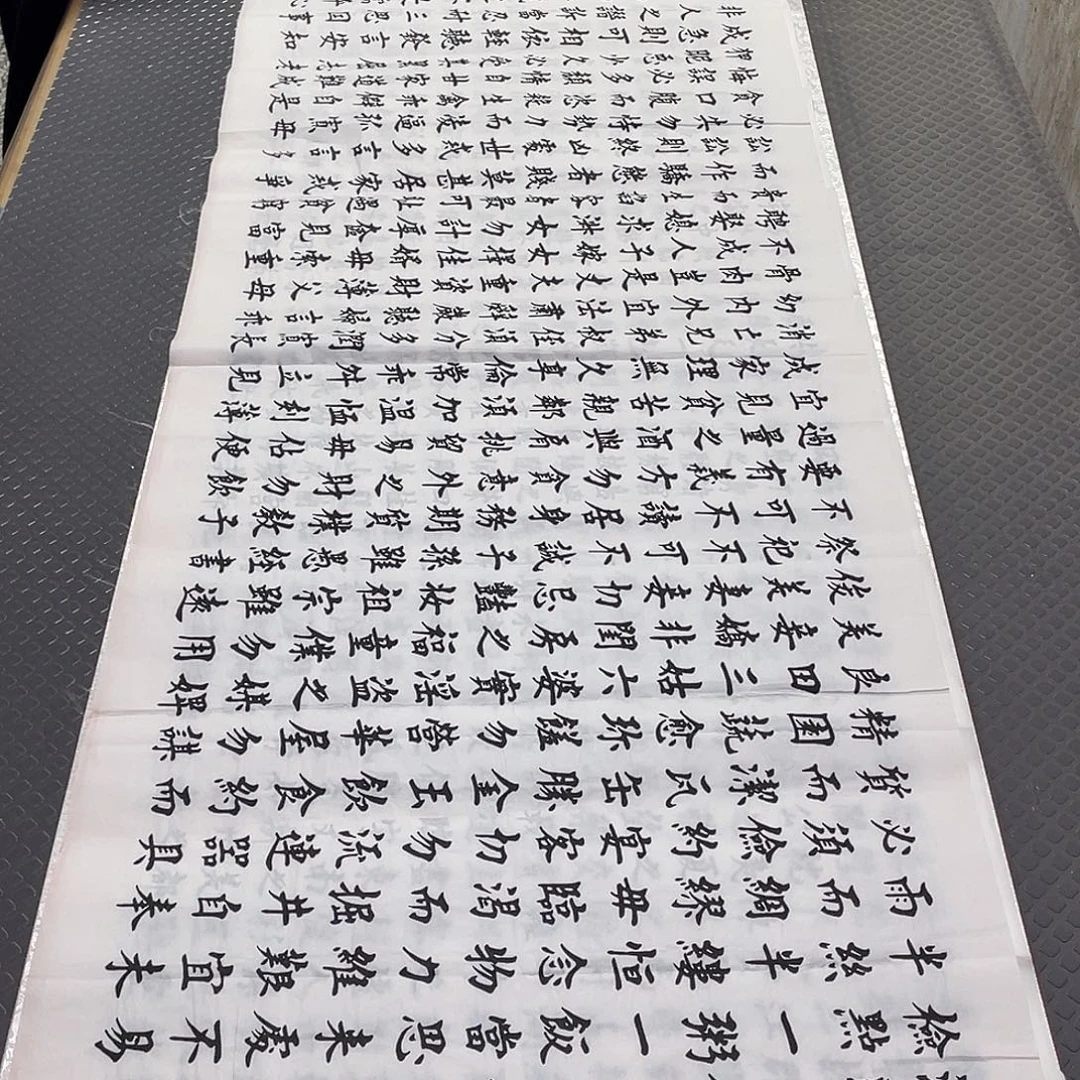 檢點一粥一飯當思來處不易
半絲半縷恒念物力維艱宜未
雨而綢繆毋臨渴而掘井自奉
必須儉約宴客切勿流連器具
質而潔瓦缶勝金玉飲食約而
精園蔬愈珍饈勿營華屋勿謀
良田三姑六婆實淫盜之媒婢
美妾嬌非閨房之福童僕勿用
俊美妻妾切忌豔妝祖宗雖遠
祭祀不可不誠子孫雖愚經書
不可不讀居身務期質樸教子
要有義方勿貪意外之財勿飲
過量之酒與肩挑貿易毋佔便
宜見貧苦親鄰須加溫恤刻薄
成家理無久享倫常乖舛立見
消亡兄弟叔侄須分多潤寡長
幼內外宜法肅辭嚴聽婦言乖
骨肉豈是丈夫重資財薄父母
不成人子嫁女擇佳婿毋索重
聘娶媳求淑女勿計厚奩見富
貴而生諂容者最可恥遇貧窮
而作驕態者賤莫甚居家戒爭
訟訟則終凶處世戒多言言多
必失勿恃勢力而凌逼孤寡毋
貪口腹而恣殺生禽乖僻自是
悔誤必多頹惰自甘家道難成
狎暱惡少久必受其累屈志老
成急則可相依輕聽發言安知
非人之譖訴當忍耐三思因事